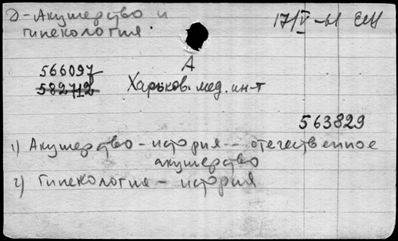 Э-Акушерство и 17/V-61
гинекология.
А
566097
582712 Харьков. мед. ин-т
563829
1) Акушерство - история -- отечественное
акушерство
2) Гинекология - история